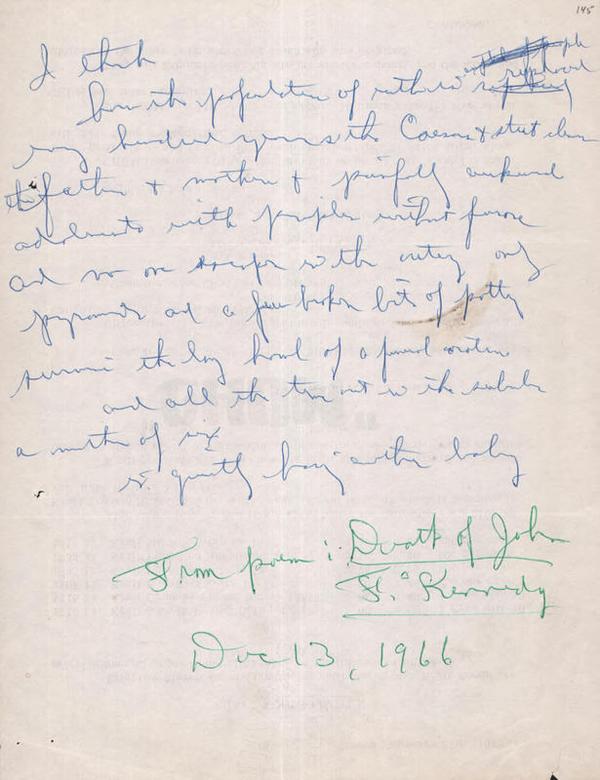 145
I think
how the population of entire is replaced
every hundred years the Caesars & street
the father & mother & painfully awkward
adolescents with pimples without favor
and no one escapes with only
pyramids and a few broken bits of pottery
survive the long howl of a funeral oration
and all the time out in the suburbs
a mother of six
is quietly having another baby
From poem: Death of John
F. Kennedy
Dec 13, 1966